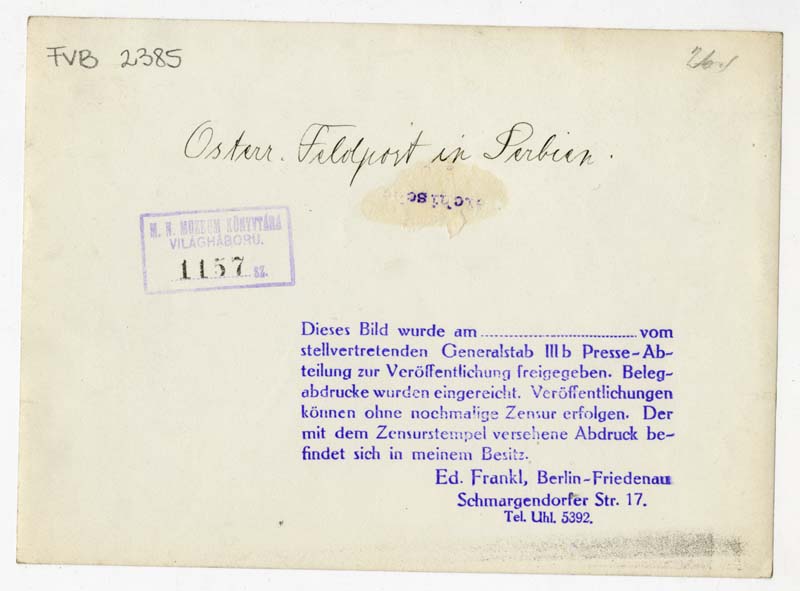 FVB 2385
Österr. Feldpost in Serbien.
M. N. MÚZEUM KÖNYVTÁRA
VILÁGHÁBORÚ.
1157 SZ.
Dieses Bild wurde am ........................ vom
stellvertretenden Generalstab III b Presse-Ab-
teilung zur Veröffentlichung freigegeben. Beleg-
abdrucke wurden eingereicht. Veröffentlichungen
können ohne nochmalige Zensur erfolgen. Der
mit dem Zensurstempel versehene Abdruck be-
findet sich in meinem Besitz.
Ed. Frankl, Berlin-Friedenau
Schmargendorfer Str. 17.
Tel. Uhl. 5392.